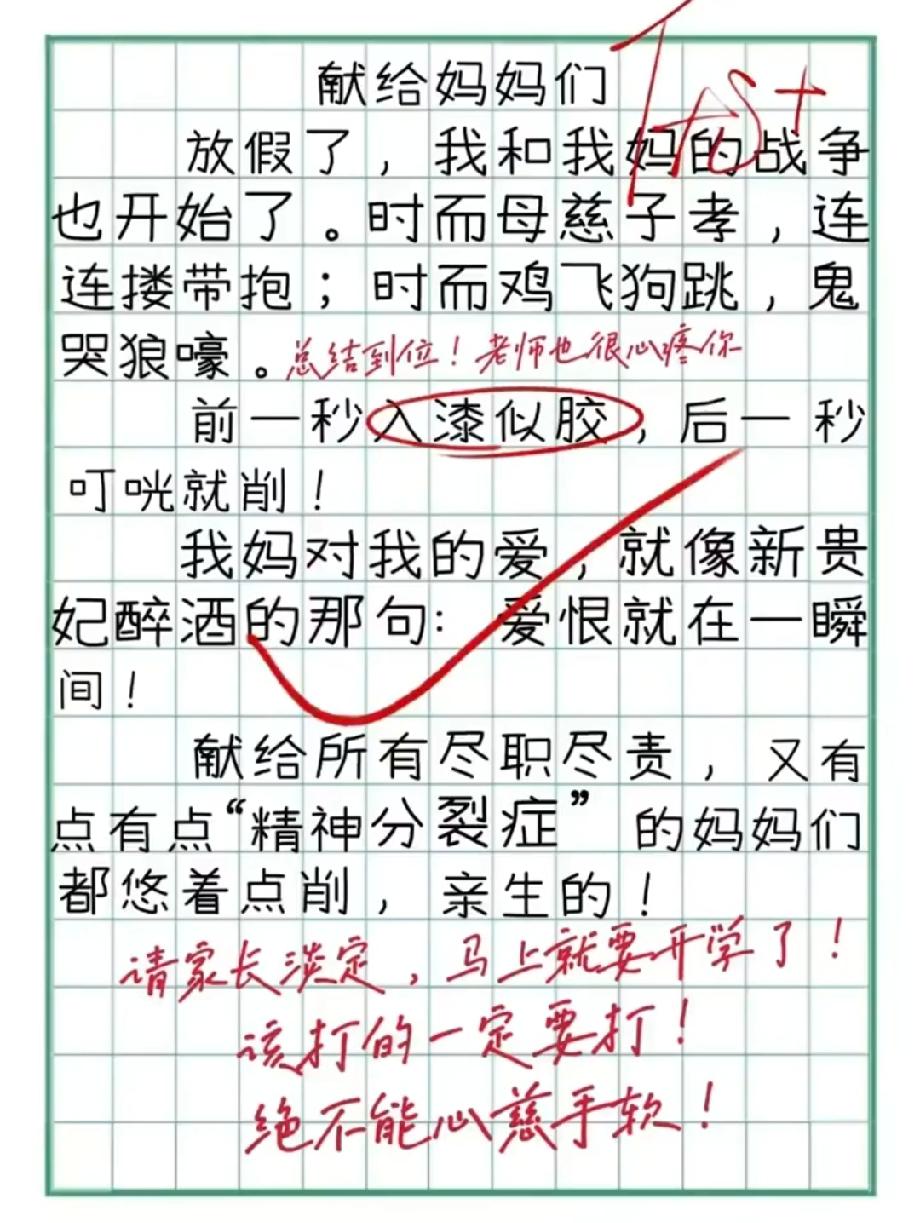 献给妈妈们
放假了，我和我妈的战争
也开始了。时而母慈子孝，连
连搂带抱；时而鸡飞狗跳，鬼
哭狼嚎。总结到位！老师也很心疼你
前一秒入漆似胶，后一秒
叮咣就削！
我妈对我的爱，就像新贵
妃醉酒的那句：爱恨就在一瞬
间！
献给所有尽职尽责，又有
点有点“精神分裂症”的妈妈们
都悠着点削，亲生的！
请家长淡定，马上就要开学了！
该打的一定要打！
绝不能心慈手软！